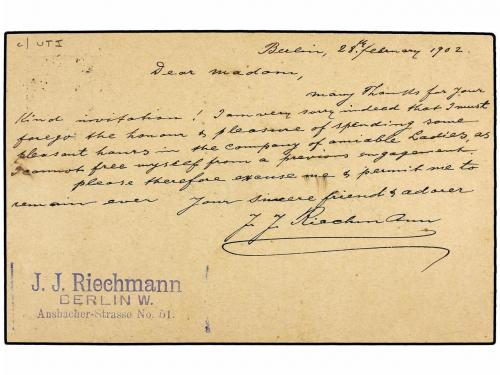 c/ UTI
Berlin, 28th february 1902.
Dear Madam,
many Thanks for your
Kind invitation! I am very sorry indeed that I must
forego the honour & pleasure of spending some
pleasant hours in the company of amiable Ladies, as
I cannot free myself from a previous engagement.
please therefore excuse me & permit me to
remain ever your sincere friend & adorer
J. J. Riechmann
J. J. Riechmann
BERLIN W.
Ansbacher-Strasse No. 51.